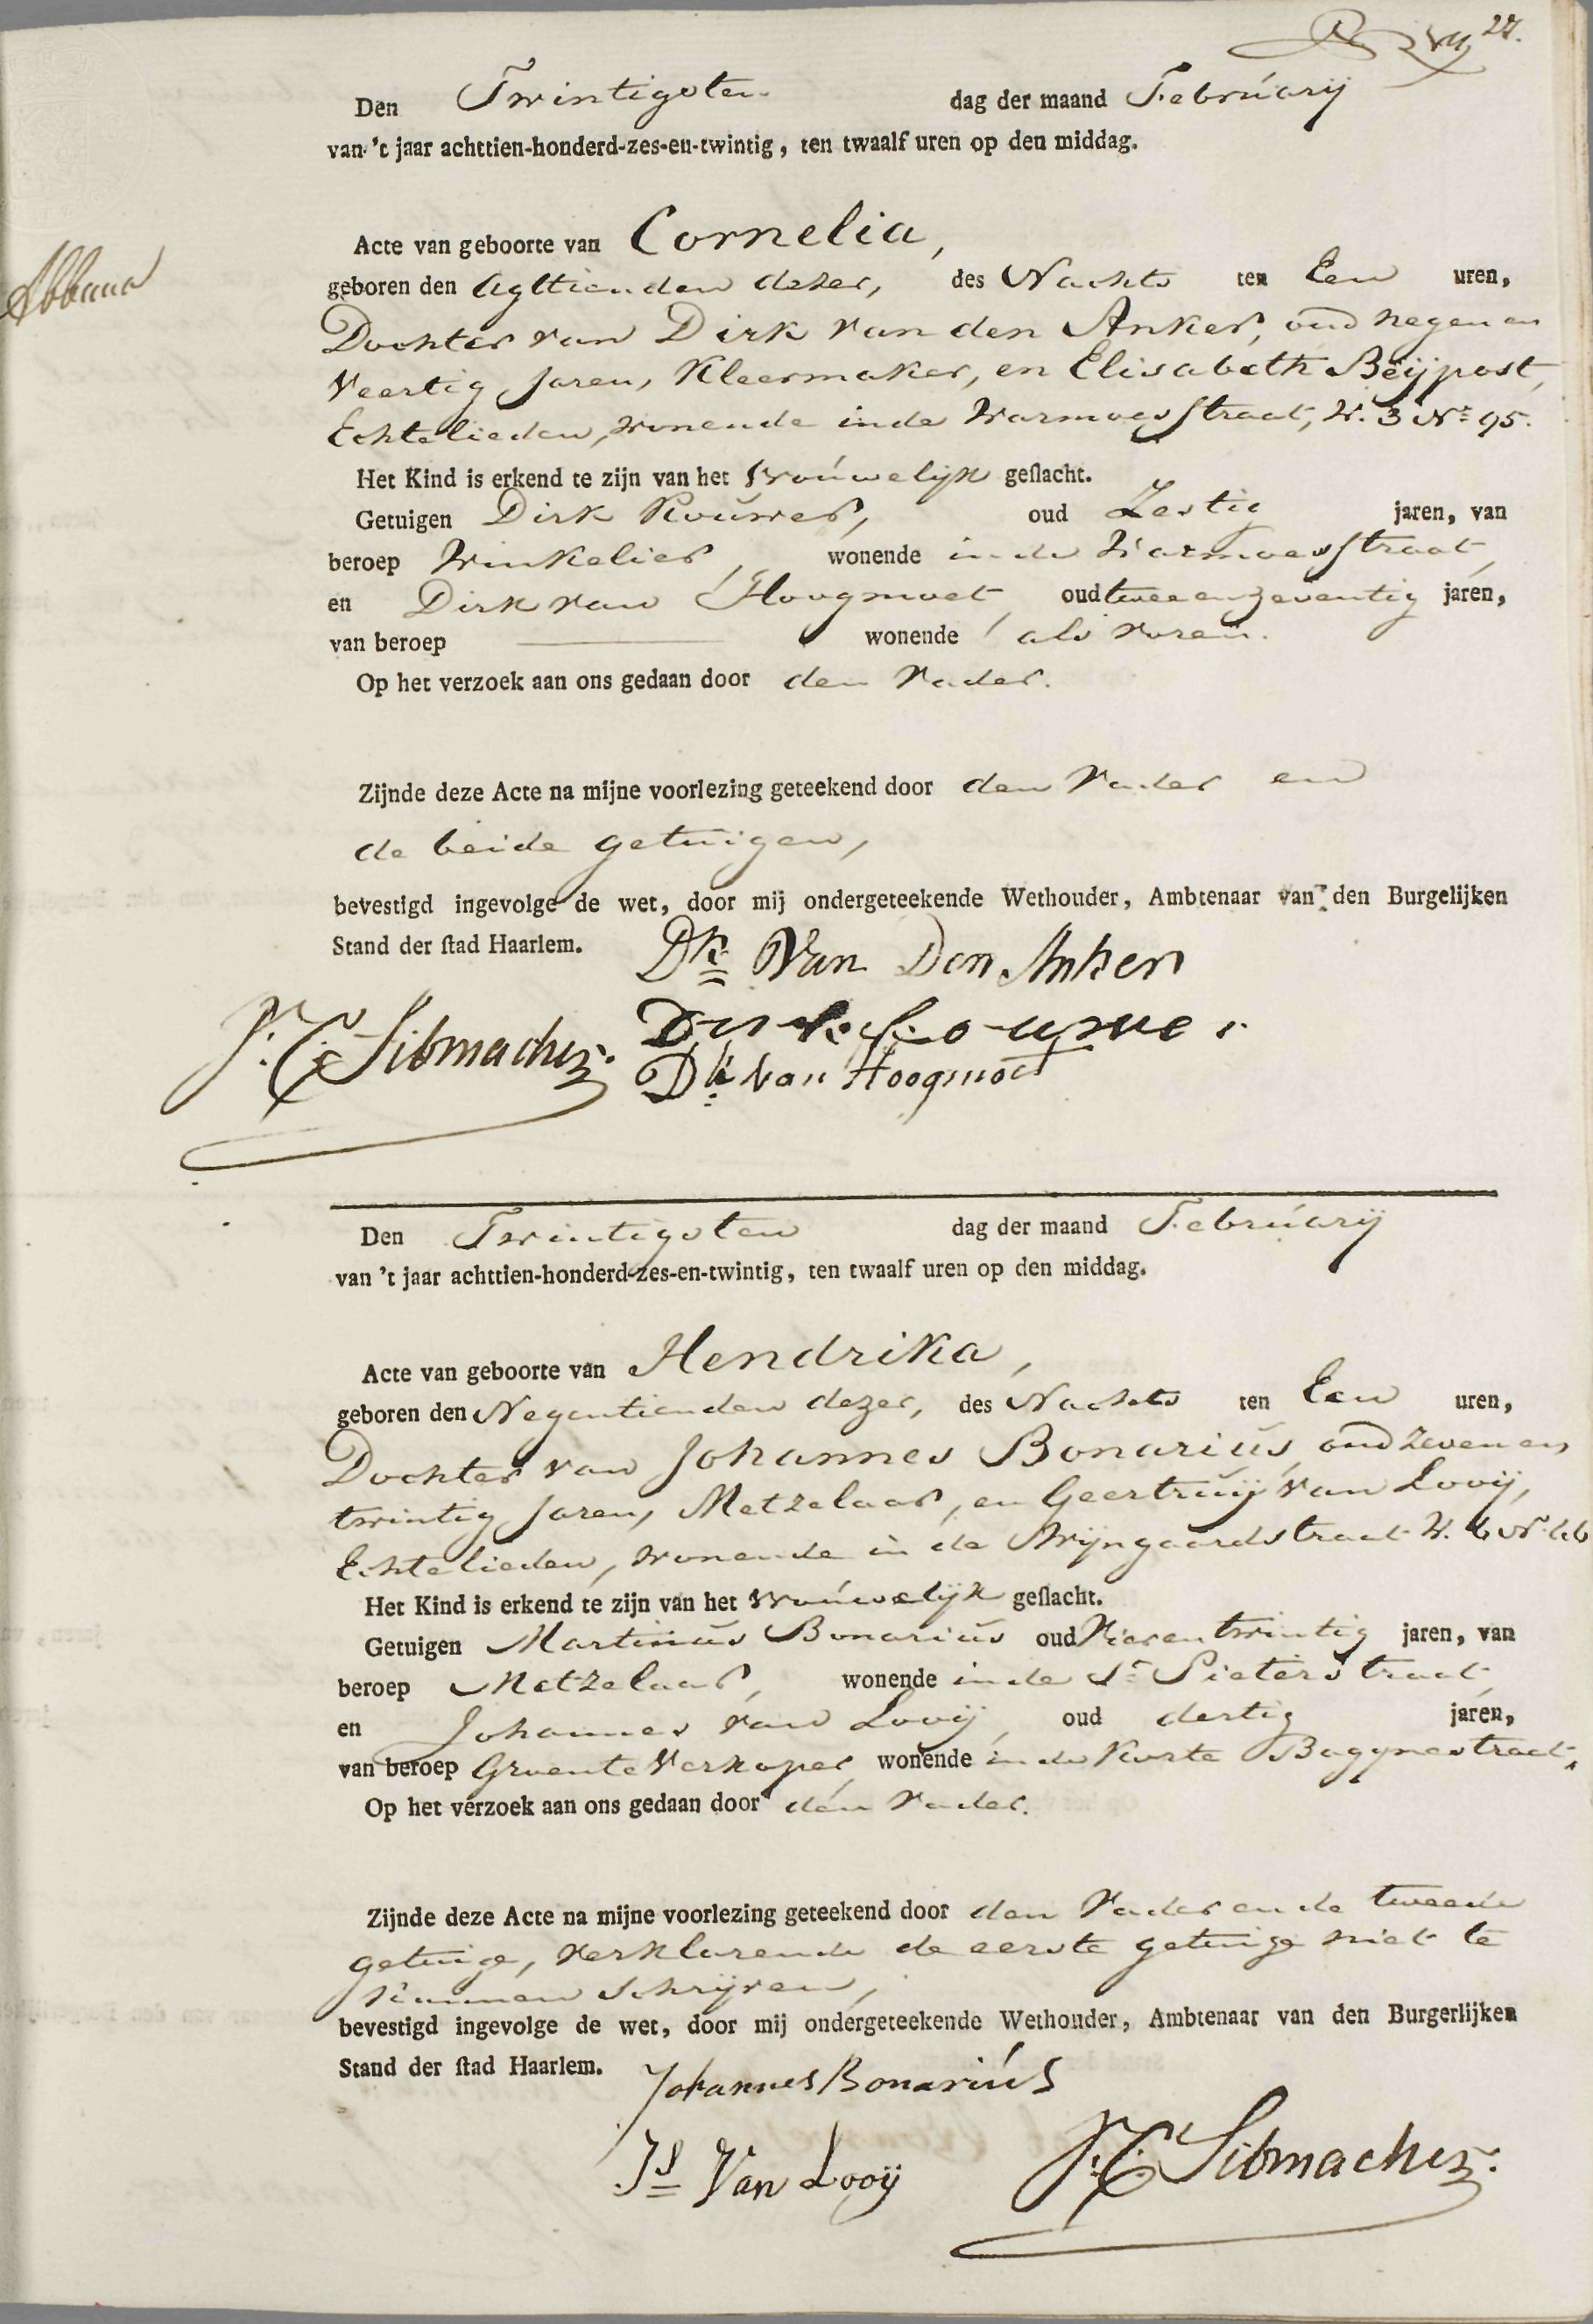 27.
Den Twintigsten dag der maand Februarij
van 't jaar achttien-honderd-zes-en-twintig, ten twaalf uren op den middag.
Acte van geboorte van Cornelia,
geboren den Agttienden dezer, des Nachts ten Een uren,
Dochter van Dirk van den Anker, oud negen en
veertig Jaren, Kleermaker, en Elisabeth Beijpost,
Echtelieden, wonende in de Warmoesstraat, W. 3 N.º 95.
Het Kind is erkend te zijn van het vrouwelijk geslacht.
Getuigen Dirk Rouwer, oud Zestig jaren, van
beroep Winkelier, wonende in de Warmoesstraat,
en Dirk van Hoogmoet, oud twee en zeventig jaren,
van beroep ——— wonende als voren.
Op het verzoek aan ons gedaan door den Vader.
Zijnde deze Acte na mijne voorlezing geteekend door den Vader en
de beide getuigen,
bevestigd ingevolge de wet, door mij ondergeteekende Wethouder, Ambtenaar van den Burgelijken
Stand der stad Haarlem.
Dk Van Den Anker
Dk van Hoogmoet
Sibmacher
Den Twintigsten dag der maand Februarij
van 't jaar achttien-honderd-zes-en-twintig, ten twaalf uren op den middag.
Acte van geboorte van Hendrika,
geboren den Negentienden dezer, des Nachts ten Een uren,
Dochter van Johannes Bonarius, oud zeven en
twintig Jaren, Metzelaar, en Geertruij van Looij,
Echtelieden, wonende in de Wijngaardstraat W. 6 N.
Het Kind is erkend te zijn van het vrouwelijk geslacht.
Getuigen Martinus Bonarius oud Vier en twintig jaren, van
beroep Metzelaar, wonende in de St Pieterstraat,
en Johannes van Looij, oud dertig jaren,
van beroep Groente Verkoper, wonende in de Korte Bagynestraat,
Op het verzoek aan ons gedaan door den Vader.
Zijnde deze Acte na mijne voorlezing geteekend door den Vader en de tweede
getuige, verklarende de eerste getuige niet te
kunnen Schrijven,
bevestigd ingevolge de wet, door mij ondergeteekende Wethouder, Ambtenaar van den Burgerlijken
Stand der stad Haarlem.
Johannes Bonariús
Js Van Looij
Sibmacher